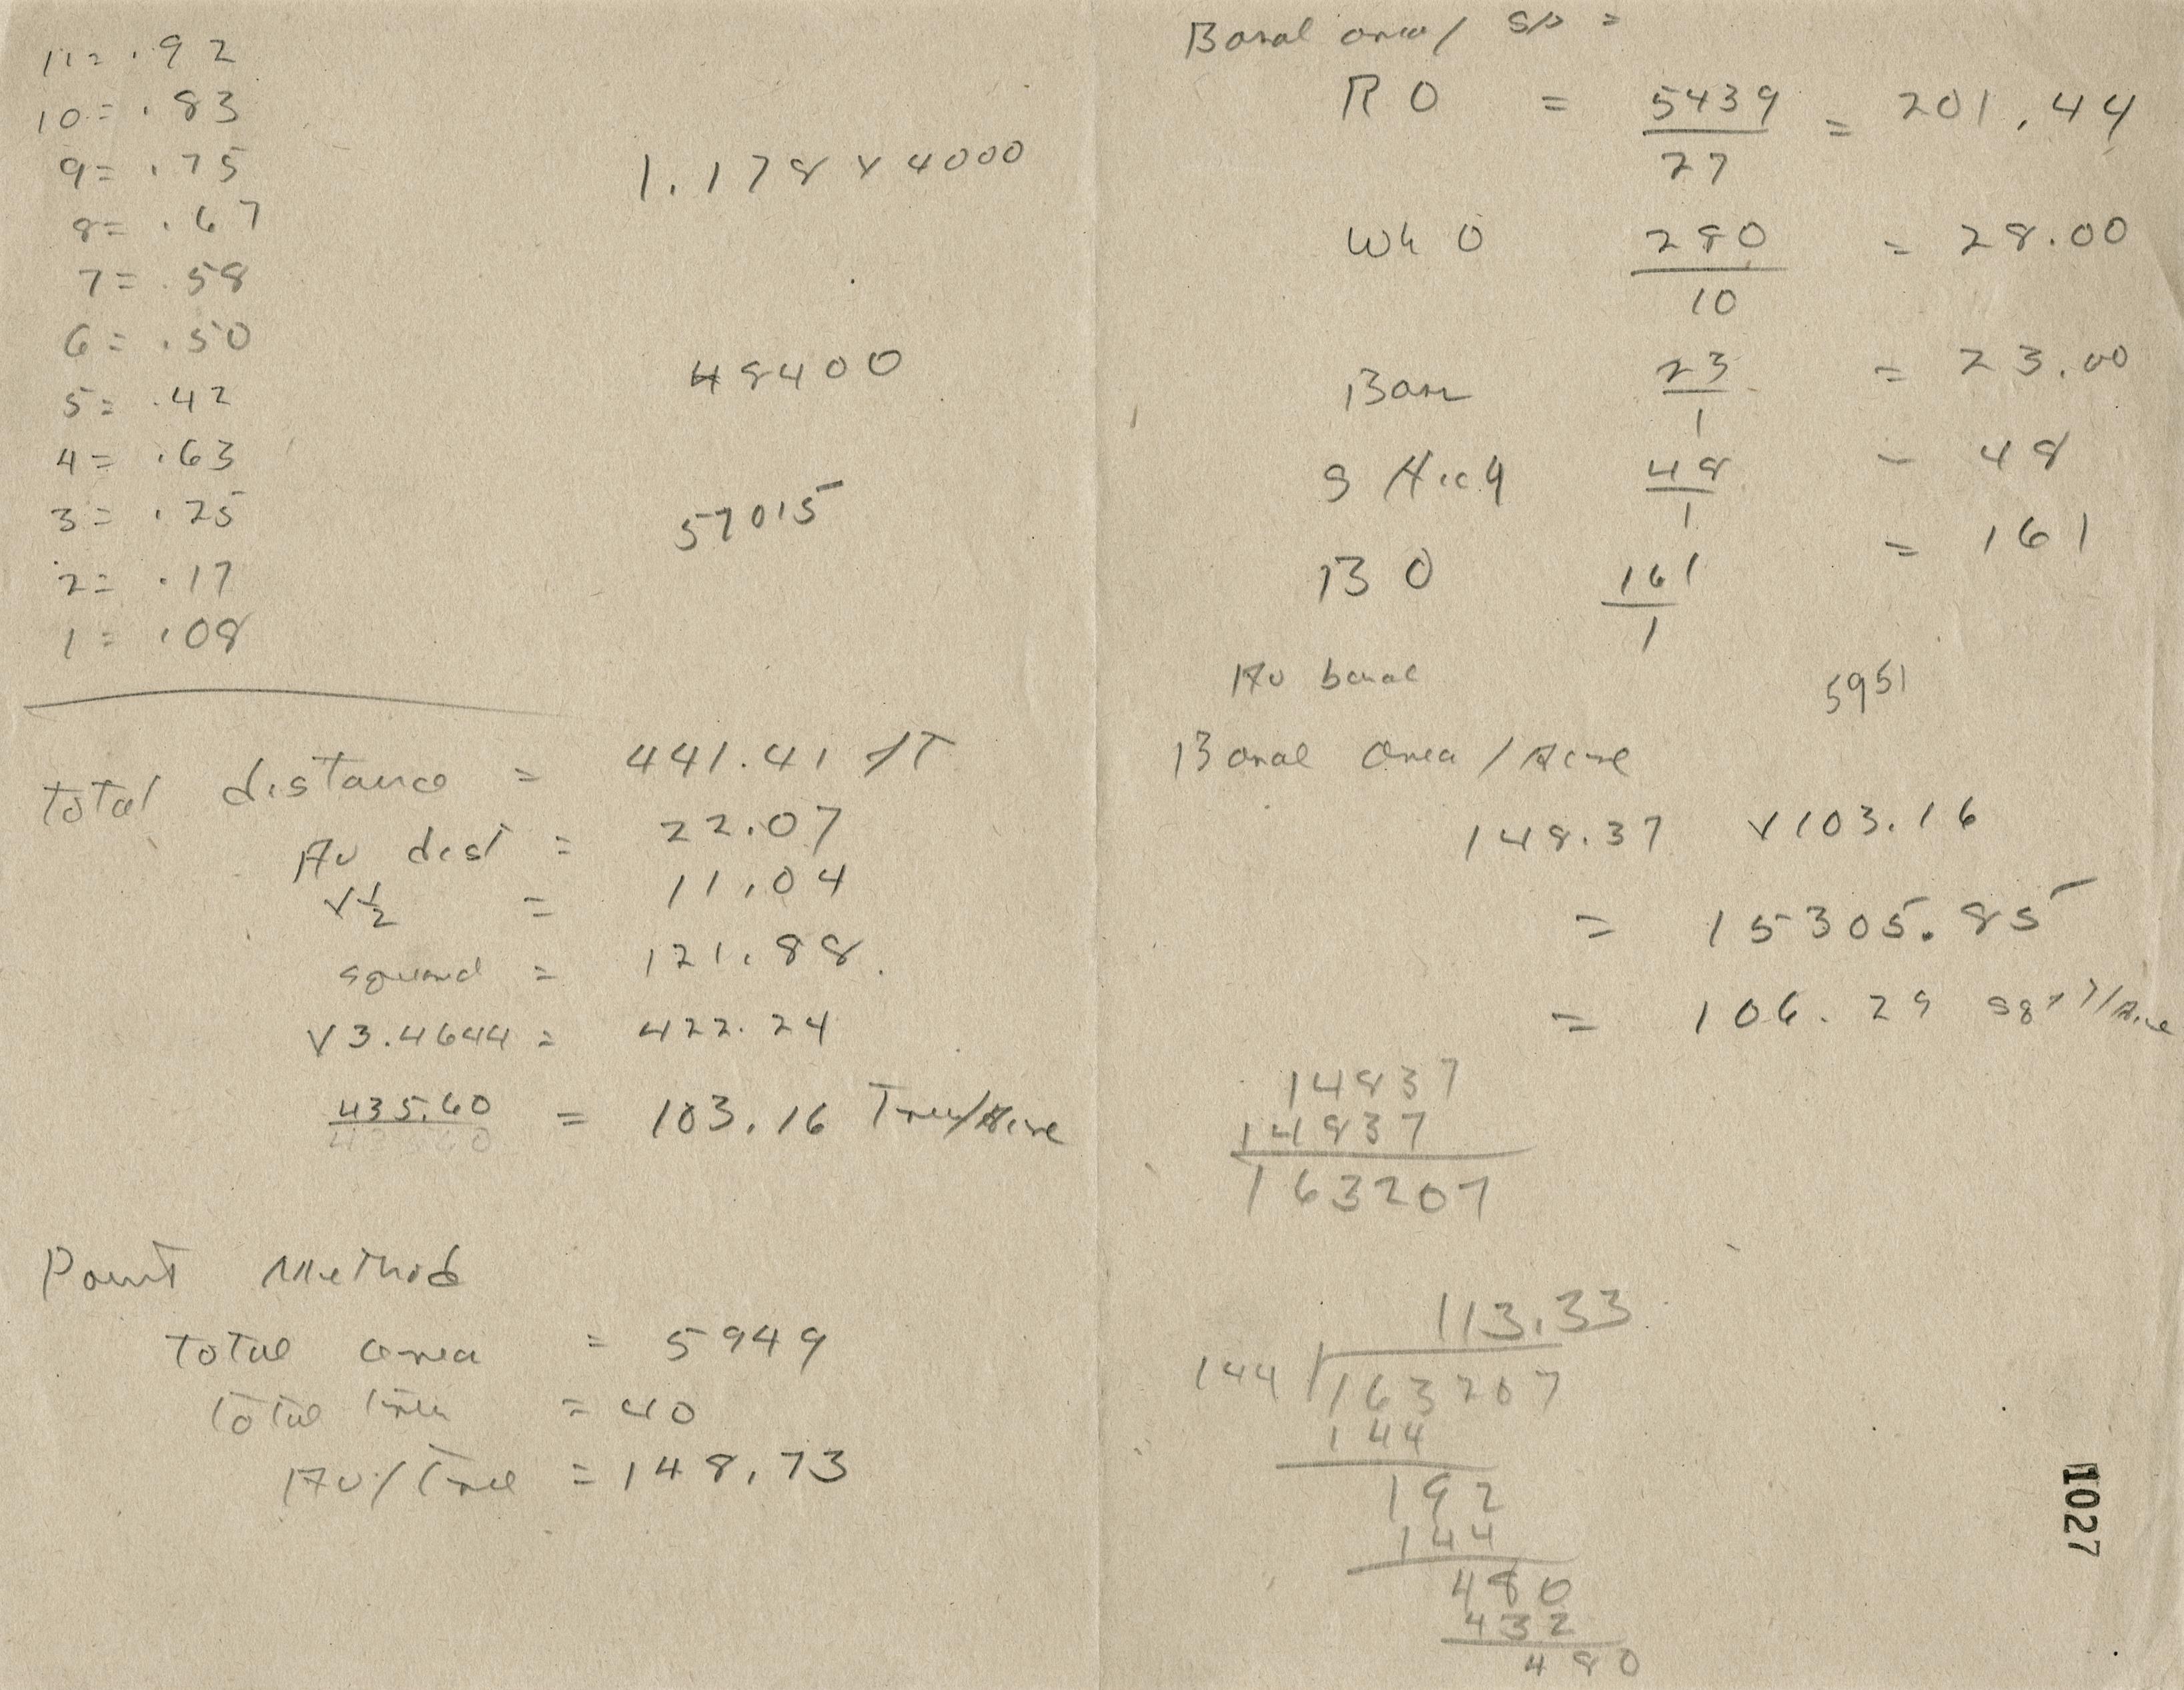 11= .92
10= .83
9= .75
8= .67
7= .58
6= .50
5= .42
4= .63
3= .25
2= .17
1= .08
1.178 x 4000
48400
57015
total distance = 441.41 ft
Av dist = 22.07
x ½ = 11.04
squared = 121.88
x 3.4644 = 422.24
435.60 = 103.16 Tree/Acre
43560
Point Method
total area = 5949
total tree = 40
Av/Tree = 148.73
Basal area/ sp =
R O = 5439/27 = 201.44
Wh O 280/10 = 28.00
Bass 23/1 = 23.00
S Hick 48/1 - 48
B O 161/1 = 161
Av basal 5951
Basal area/Acre
148.37 x 103.16
= 15305.85
= 106.29 sq ft/Acre
14837
14837
163207
113.33
144 163207
144
192
144
480
432
480
1027